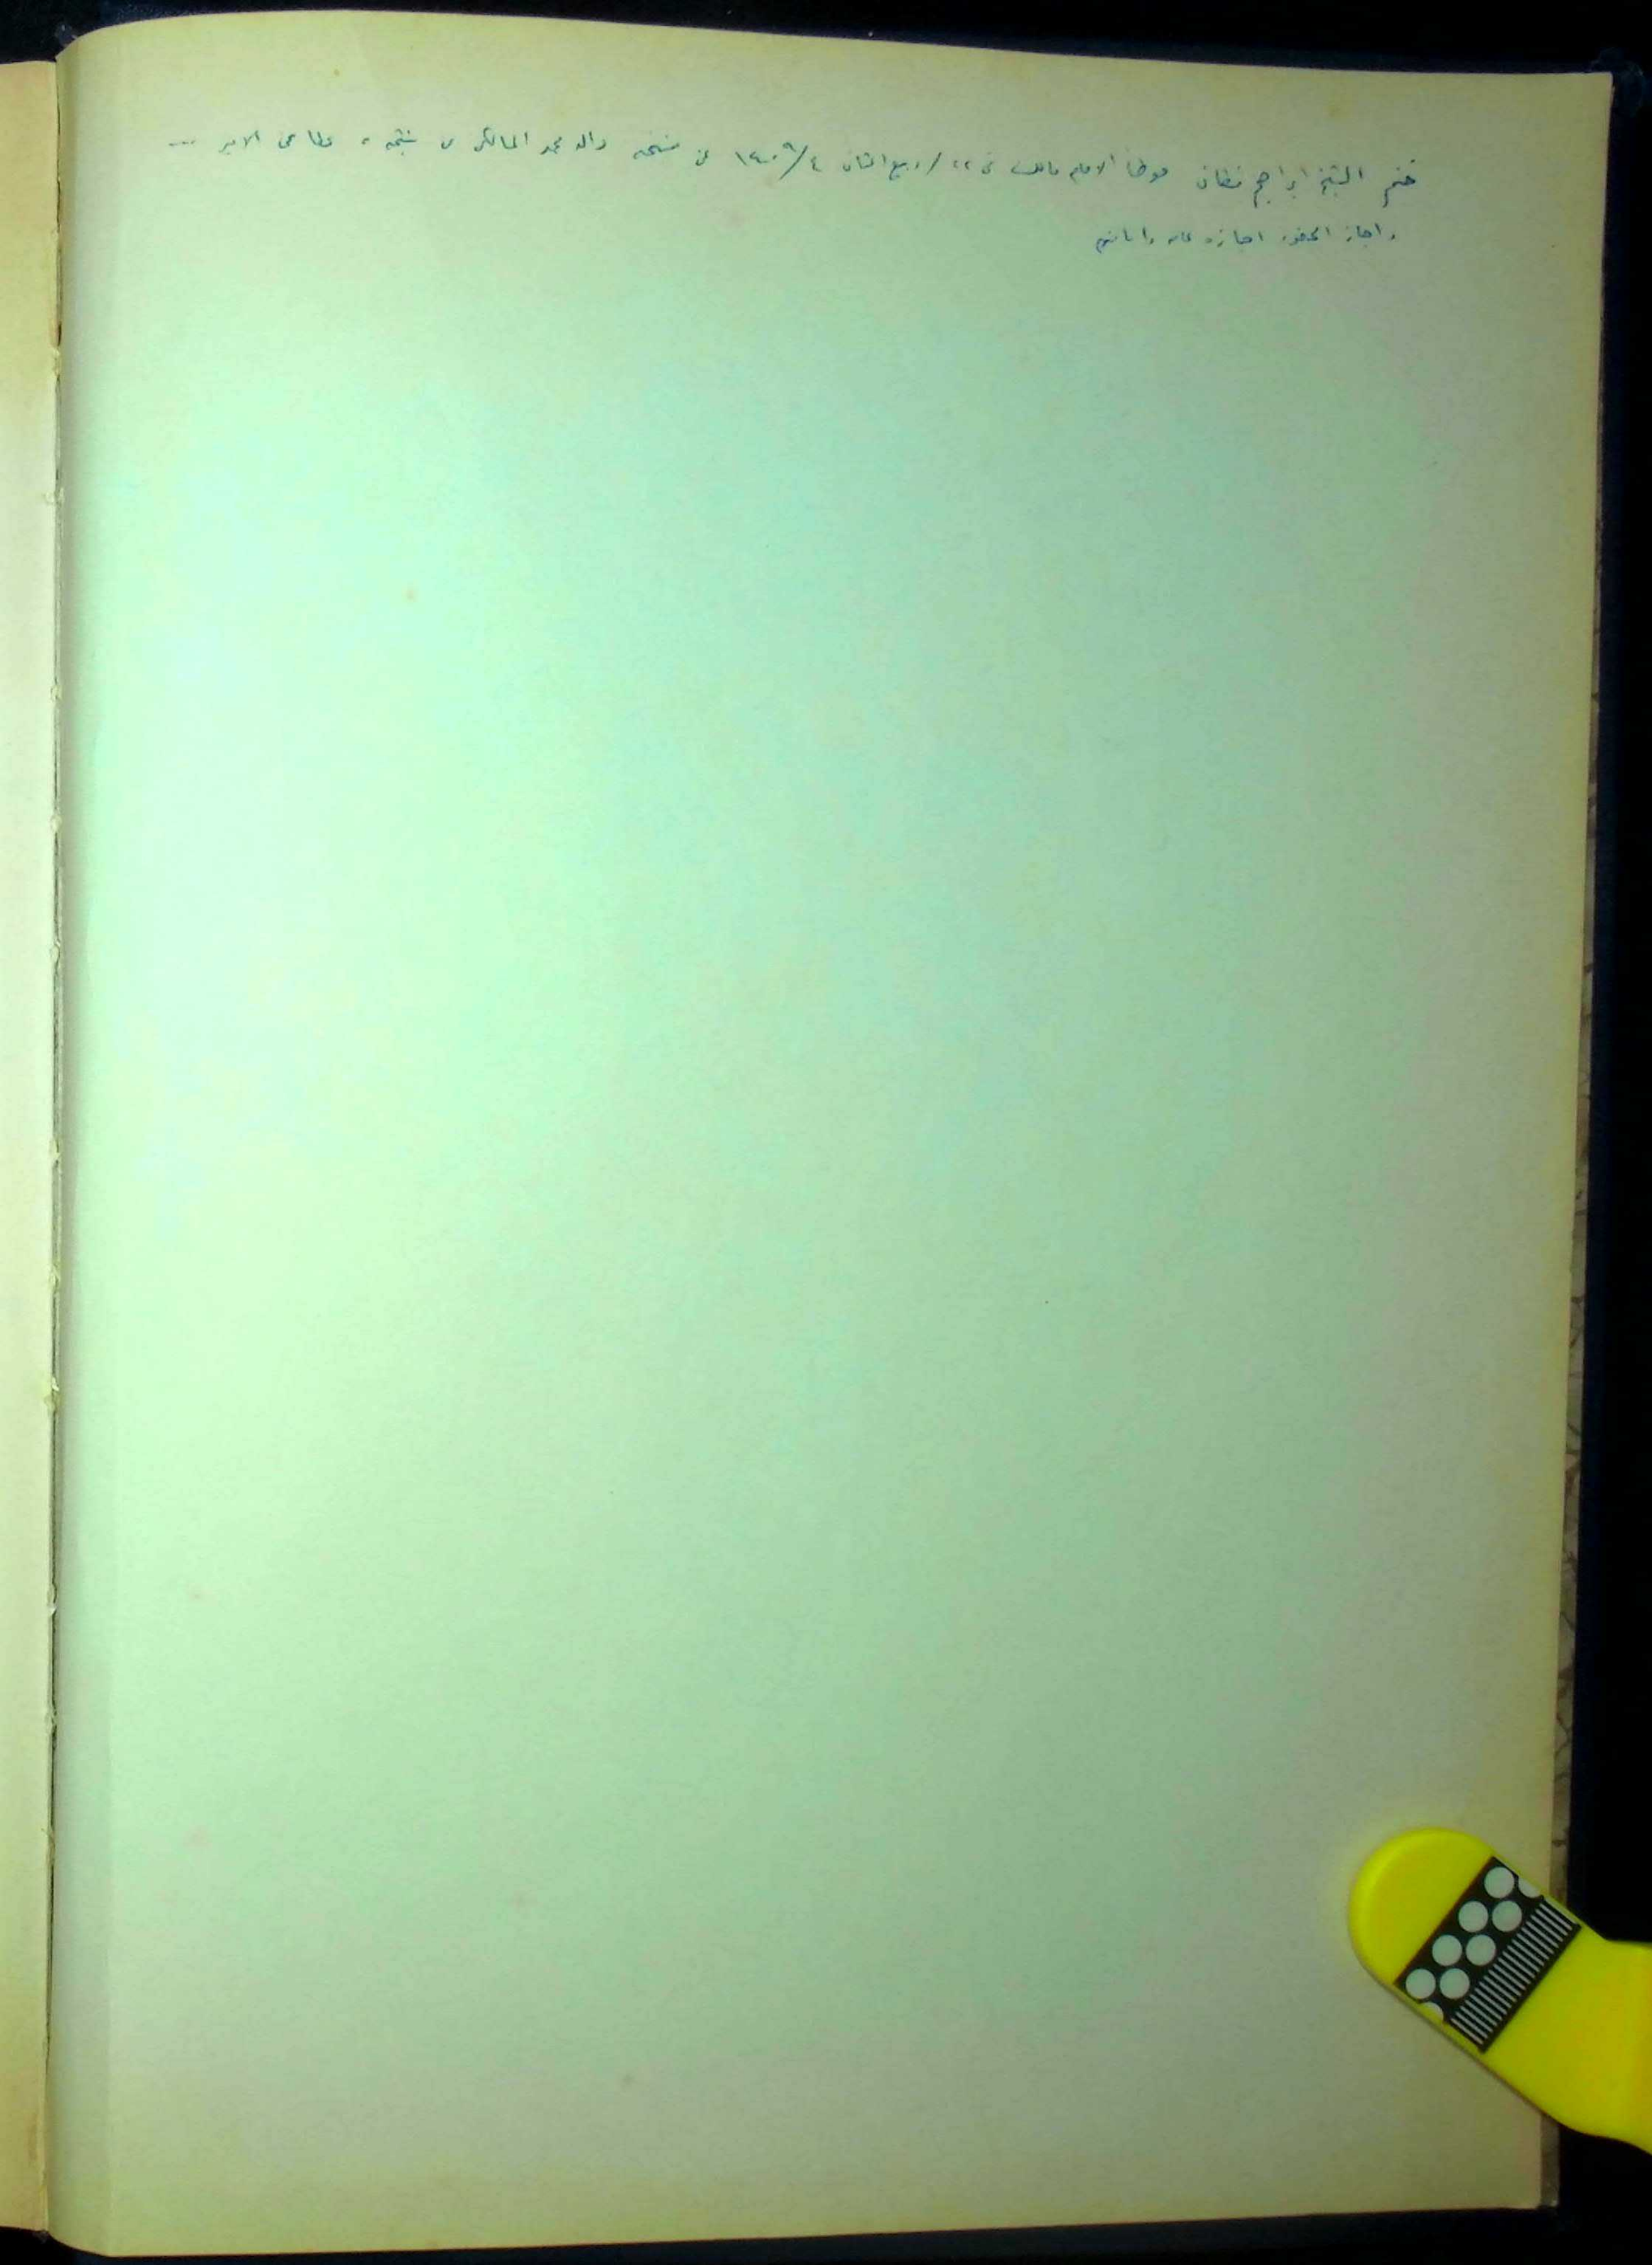 ختم الشيخ ابراهيم فطاني موطأ الامام مالك في ٢٢ / ربيع الثاني ١٤٠٩/٤ عن شيخه والد محمد المالكي عن عطا عن الامير ...
واجاز الحضور اجازه عامه وانا منهم